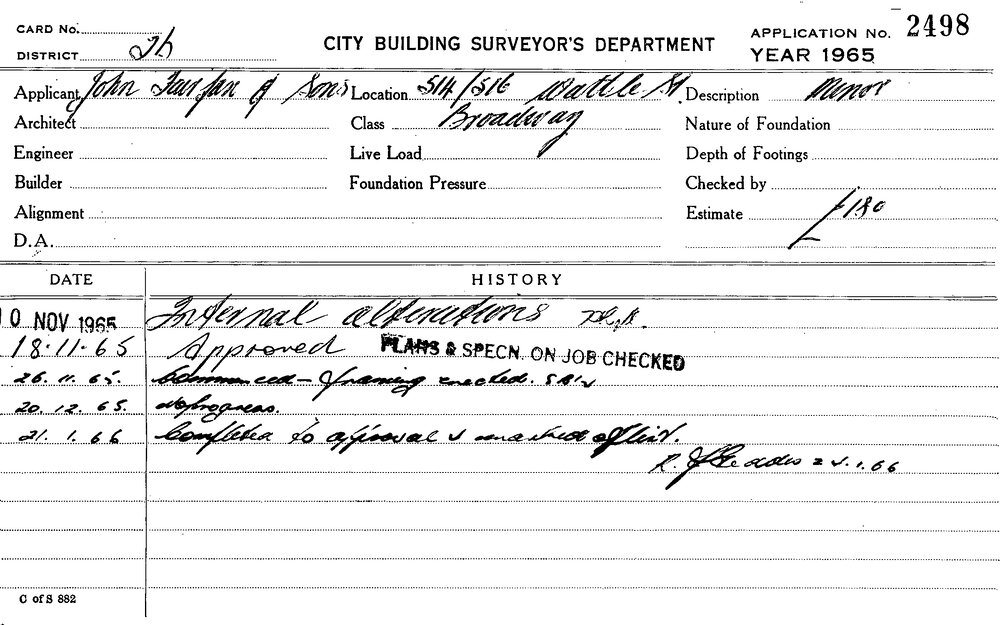 CARD No.
DISTRICT 2b
CITY BUILDING SURVEYOR'S DEPARTMENT
APPLICATION No. 2498
YEAR 1965
Applicant John Fairfax & Sons Location 514/516 Wattle St. Description Minor
Architect Class Broadway Nature of Foundation
Engineer Live Load Depth of Footings
Builder Foundation Pressure Checked by
Alignment Estimate £180
D.A.
DATE HISTORY
10 NOV 1965 Internal alterations
18.11.65 Approved PLANS & SPECN. ON JOB CHECKED
26.11.65. Commenced - framing erected.
20.12.65. No progress.
21.1.66 Completed to approval & marked off list.
R. J. Geddes 24.1.66
C of S 882